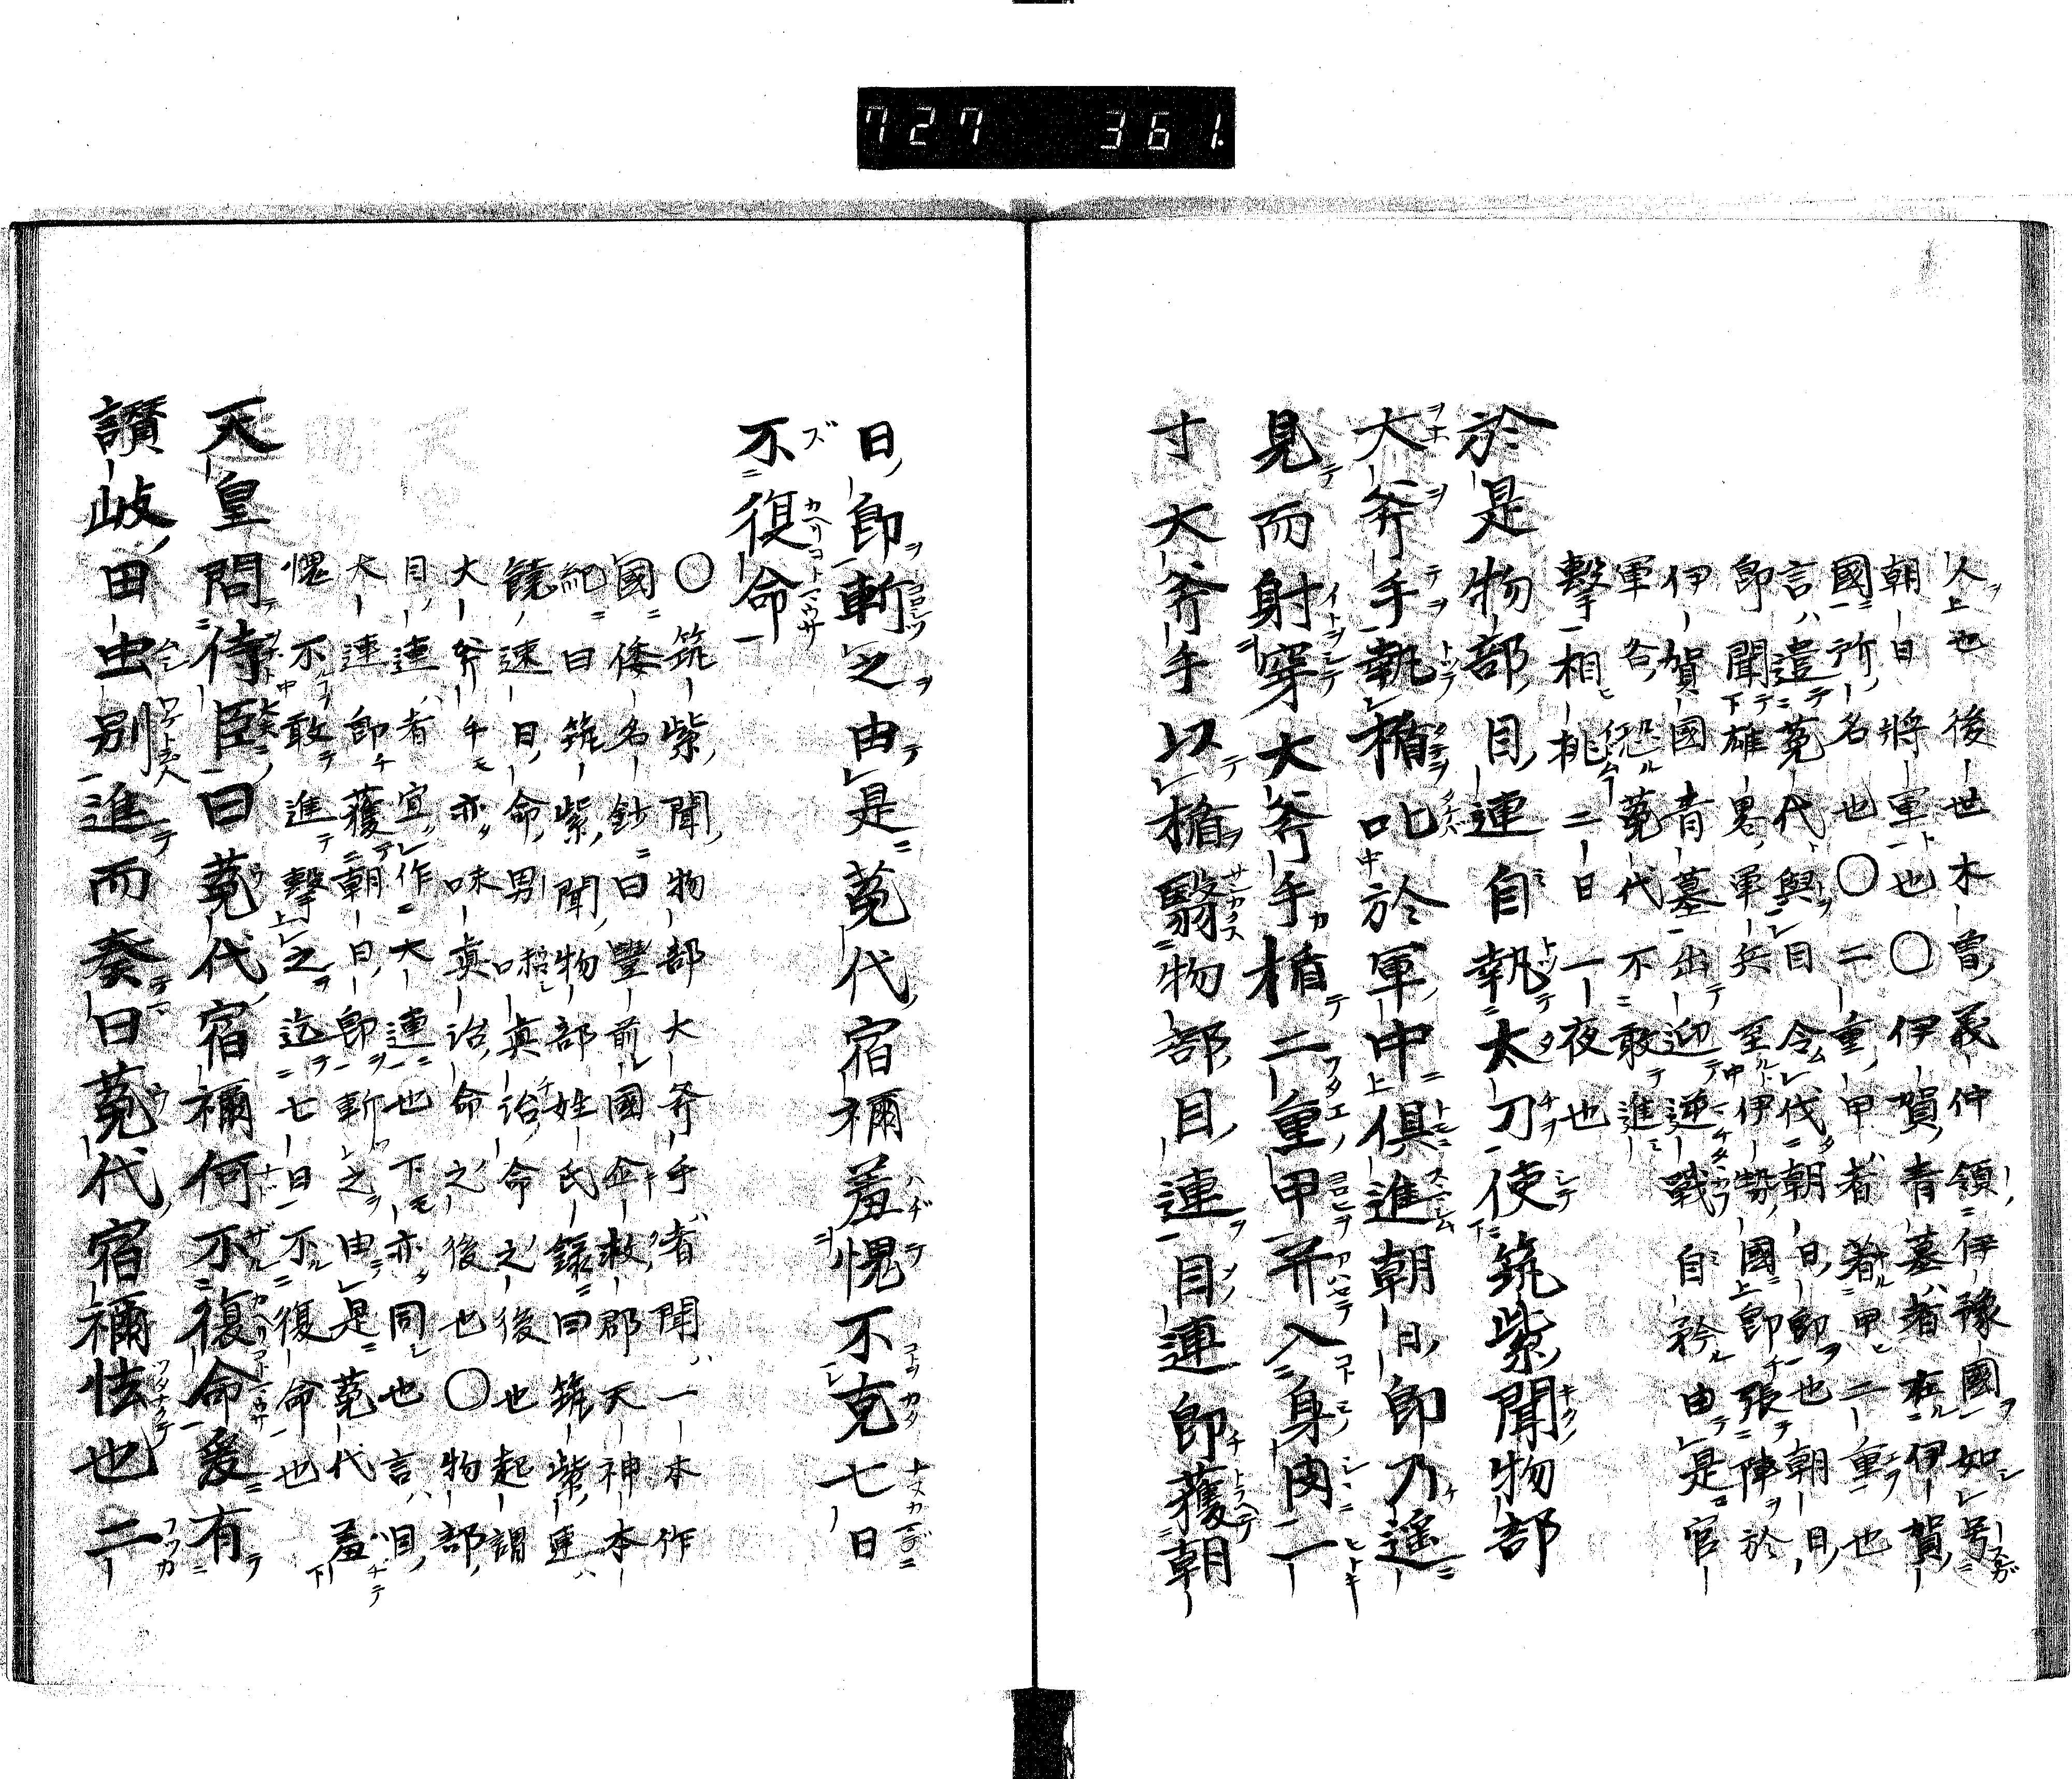 727 361.
人上也後世木曽義仲領伊豫國如号
朝日將軍也〇伊賀青墓者在伊賀
國所名也〇二重甲者著甲二重也
言遣菟代與目令伐朝日郎也朝日
郎聞雄畧軍兵至伊勢國即張陣於
伊賀國青墓出迎逆戰自矜由是官
軍各恐菟代不敢進
擊相挑二日一夜也
於是物部目連自執太刀使筑紫聞物部
大斧手執楯叱於軍中俱進朝日郎乃遥
見而射穿大斧手楯二重甲并入身肉一
寸大斧手以楯翳物部目連目連即獲朝
日郎斬之由是菟代宿禰羞愧不克七日
不復命
〇筑紫聞物部大斧手者聞一本作
國倭名鈔曰豐前國企救郡天神本
紀曰筑紫聞物部姓氏録曰筑紫連
饒速日命男味真治命之後也起謂
大斧手亦味真治命之後也〇物部
目連者宜作大連也下亦同也言目
大連即獲朝日郎斬之由是菟代羞
愧不敢進擊之迄七日不復命也
天皇問侍臣曰菟代宿禰何不復命爰有
讃岐田虫別進而奏曰菟代宿禰怯也二